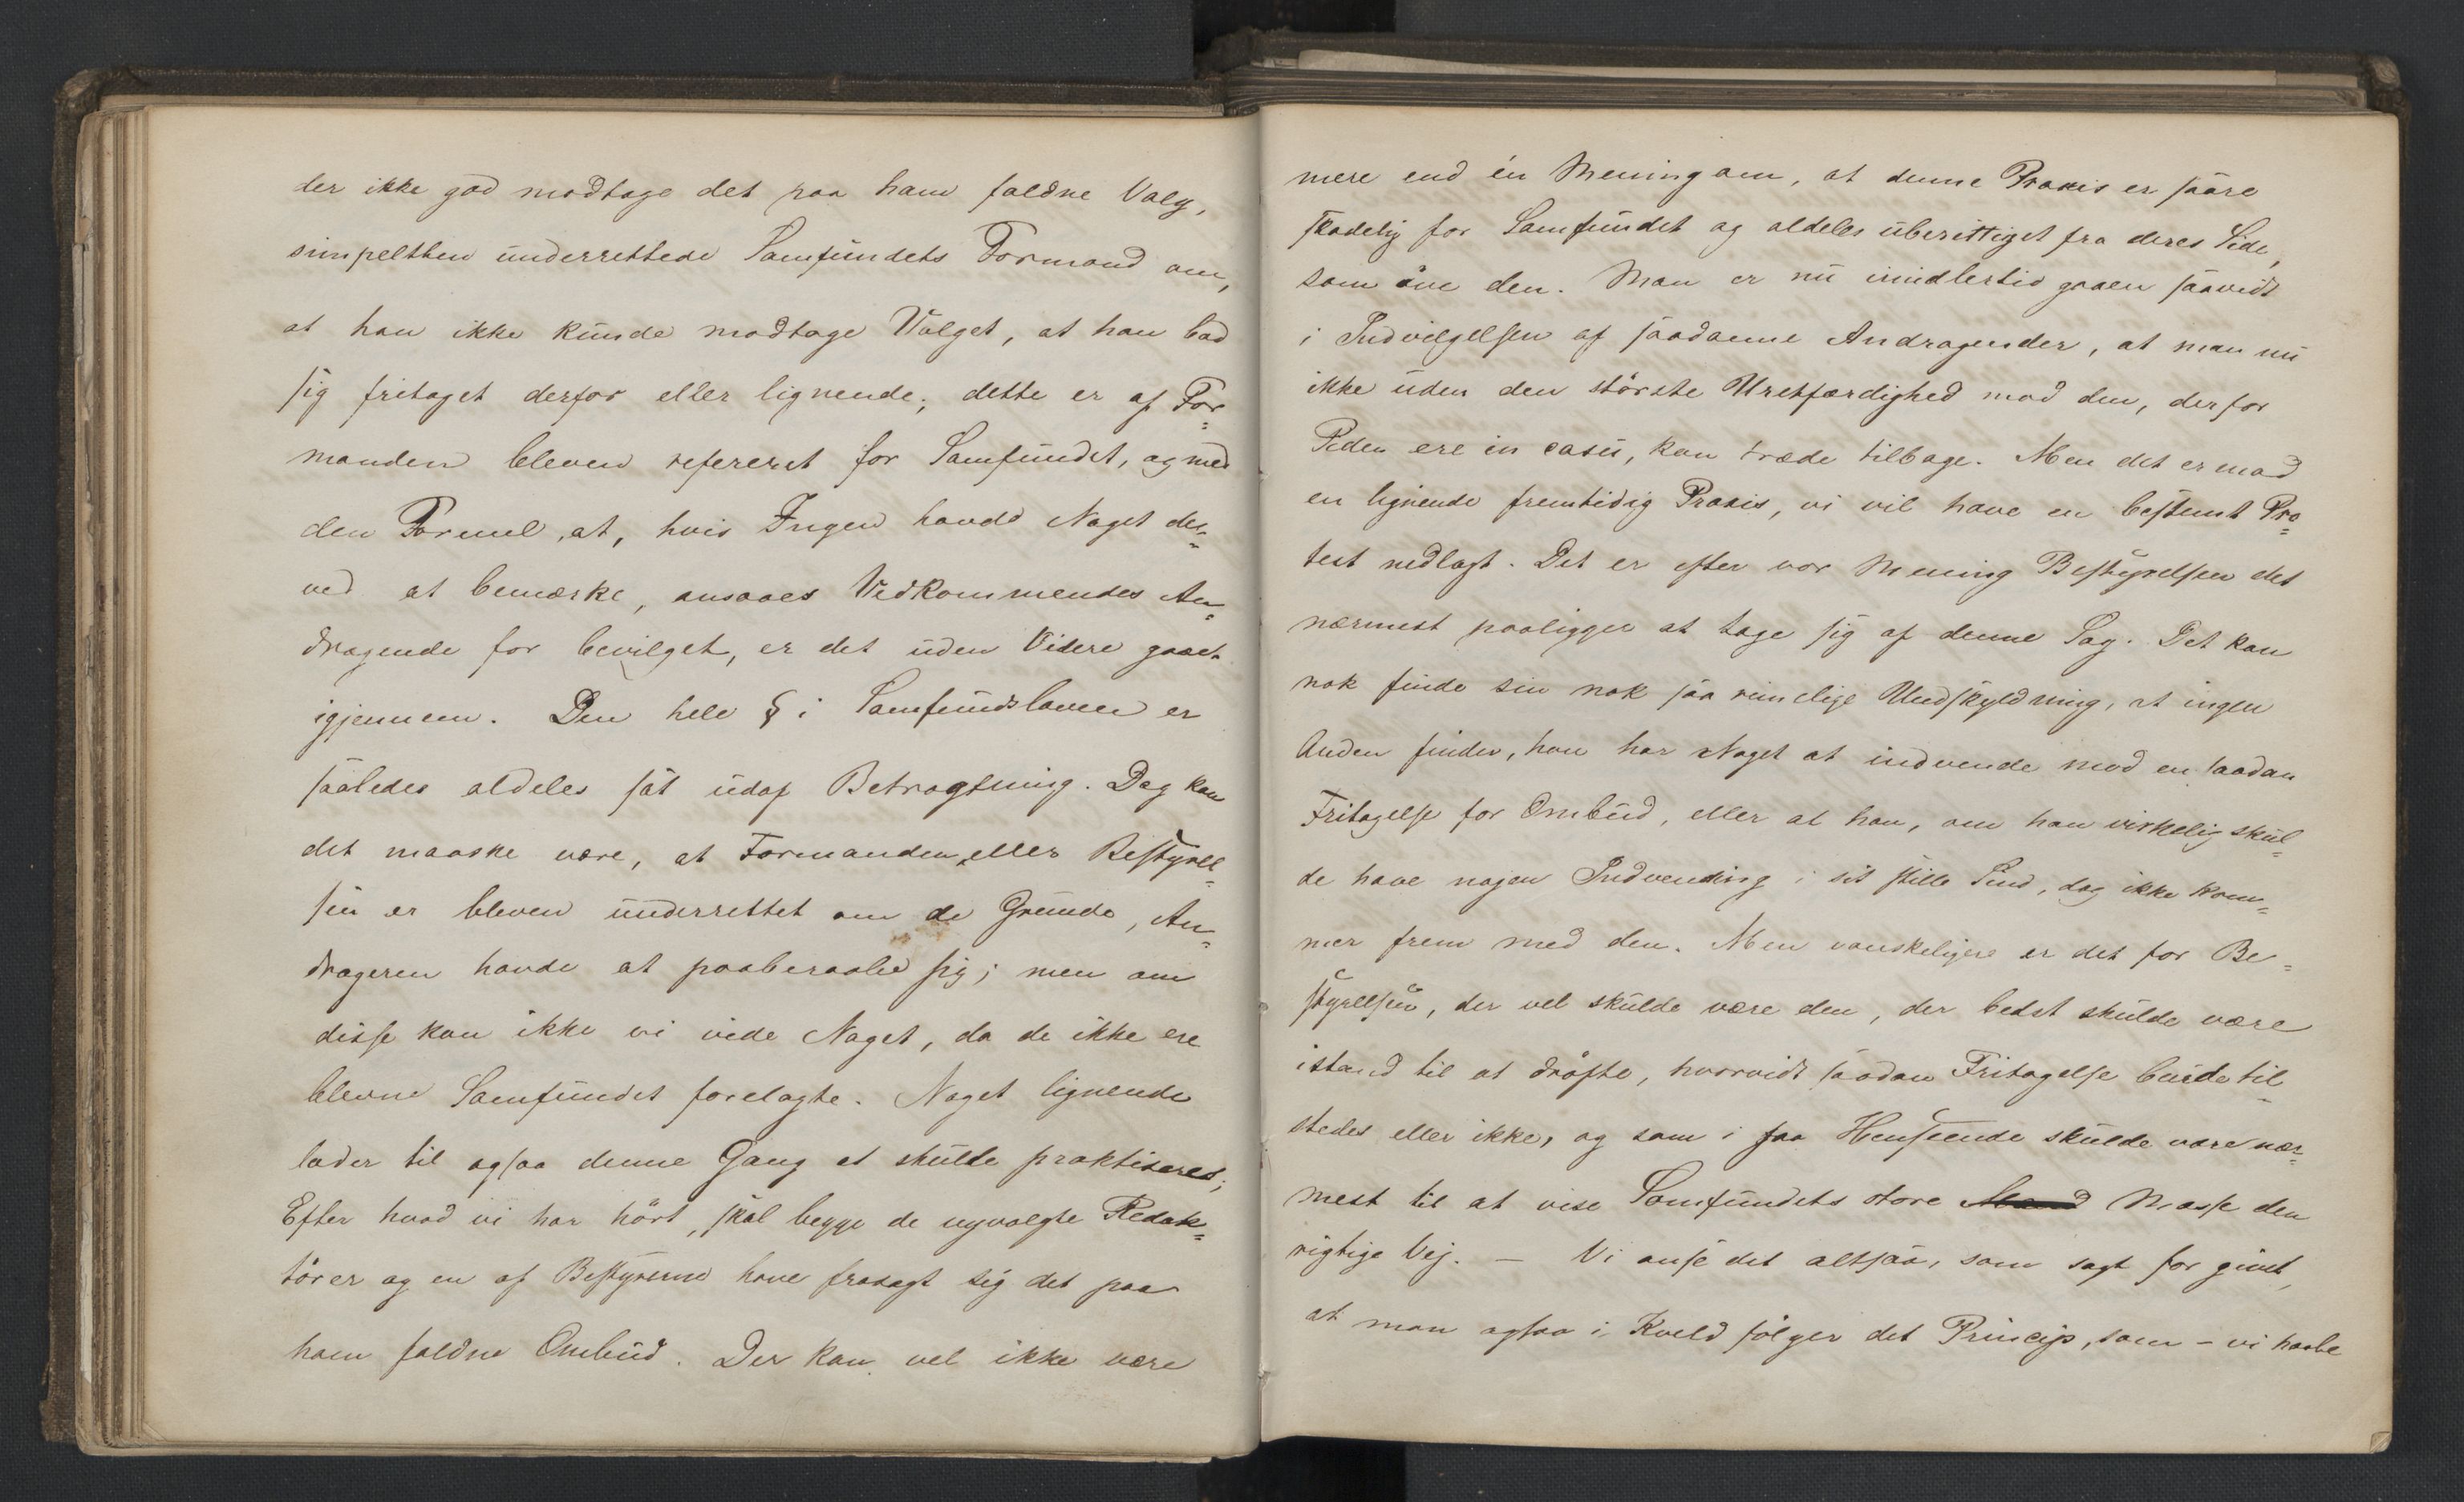 der ikke gad modtage det paa ham faldne Valg,
simpelthen underrettede Samfundets Formand om,
at han ikke kunde modtage Valget, at han bad
sig fritaget derfor eller lignende; dette er af For=
manden bleven refereret for Samfundet, og med
den Formel, at, hvis Ingen havde Noget der=
ved at bemærke, ansaaes Vedkommendes An=
dragende for bevilget, er det uden Videre gaaet
igjennem. Den hele § i Samfundsloven er
saaledes aldeles sat udaf Betragtning. Dog kan
det maaske være, at Formanden eller Bestyrel=
sen er bleven underrettet om de Grunde, An=
drageren havde at paaberaabe sig; men om
disse kan ikke vi vide Noget, da de ikke ere
blevne Samfundet forelagte. Noget lignende
lader til ogsaa denne Gang at skulle praktiseres;
Efter hvad vi har hørt, skal begge de nyvalgte Redak=
tører og en af Bestyrerne have frasagt sig det paa
ham faldne Ombud. Der kan vel ikke være
mere end én Mening om, at denne Praxis er saare
skadelig for Samfundet og aldeles uberettiget fra deres Side,
som øve den. Man er nu imidlertid gaaen saavidt
i Indvilgelsen af saadanne Andragender, at man nu
ikke uden den største Uretfærdighed mod den, der for
Tiden ere in casu, kan træde tilbage. Men det er mod
en lignende fremtidig Praxis, vi vil have en bestemt Pro=
test nedlagt. Det er efter vor Mening Bestyrelsen det
nærmest paaligger at tage sig af denne Sag. Det kan
nok finde sin nok saa rimelige Undskyldning, at ingen
Anden finder, han har Noget at indvende mod en saadan
Fritagelse for Ombud, eller at han, om han virkelig skul=
de have nogen Indvending i sit stille Sind, dog ikke kom=
mer frem med den. Men vanskeligere er det for Be=
styrelsen, der vel skulde være den, der bedst skulde være
istand til at drøfte, hvorvidt saadan Fritagelse burde til=
stedes eller ikke, og som i saa Henseende skulde være nær=
mest til at vise Samfundets store Masse den
rigtige Vej. — Vi anse det altsaa, som sagt for givet,
at man ogsaa i Kveld følger det Princip, som – vi haabe